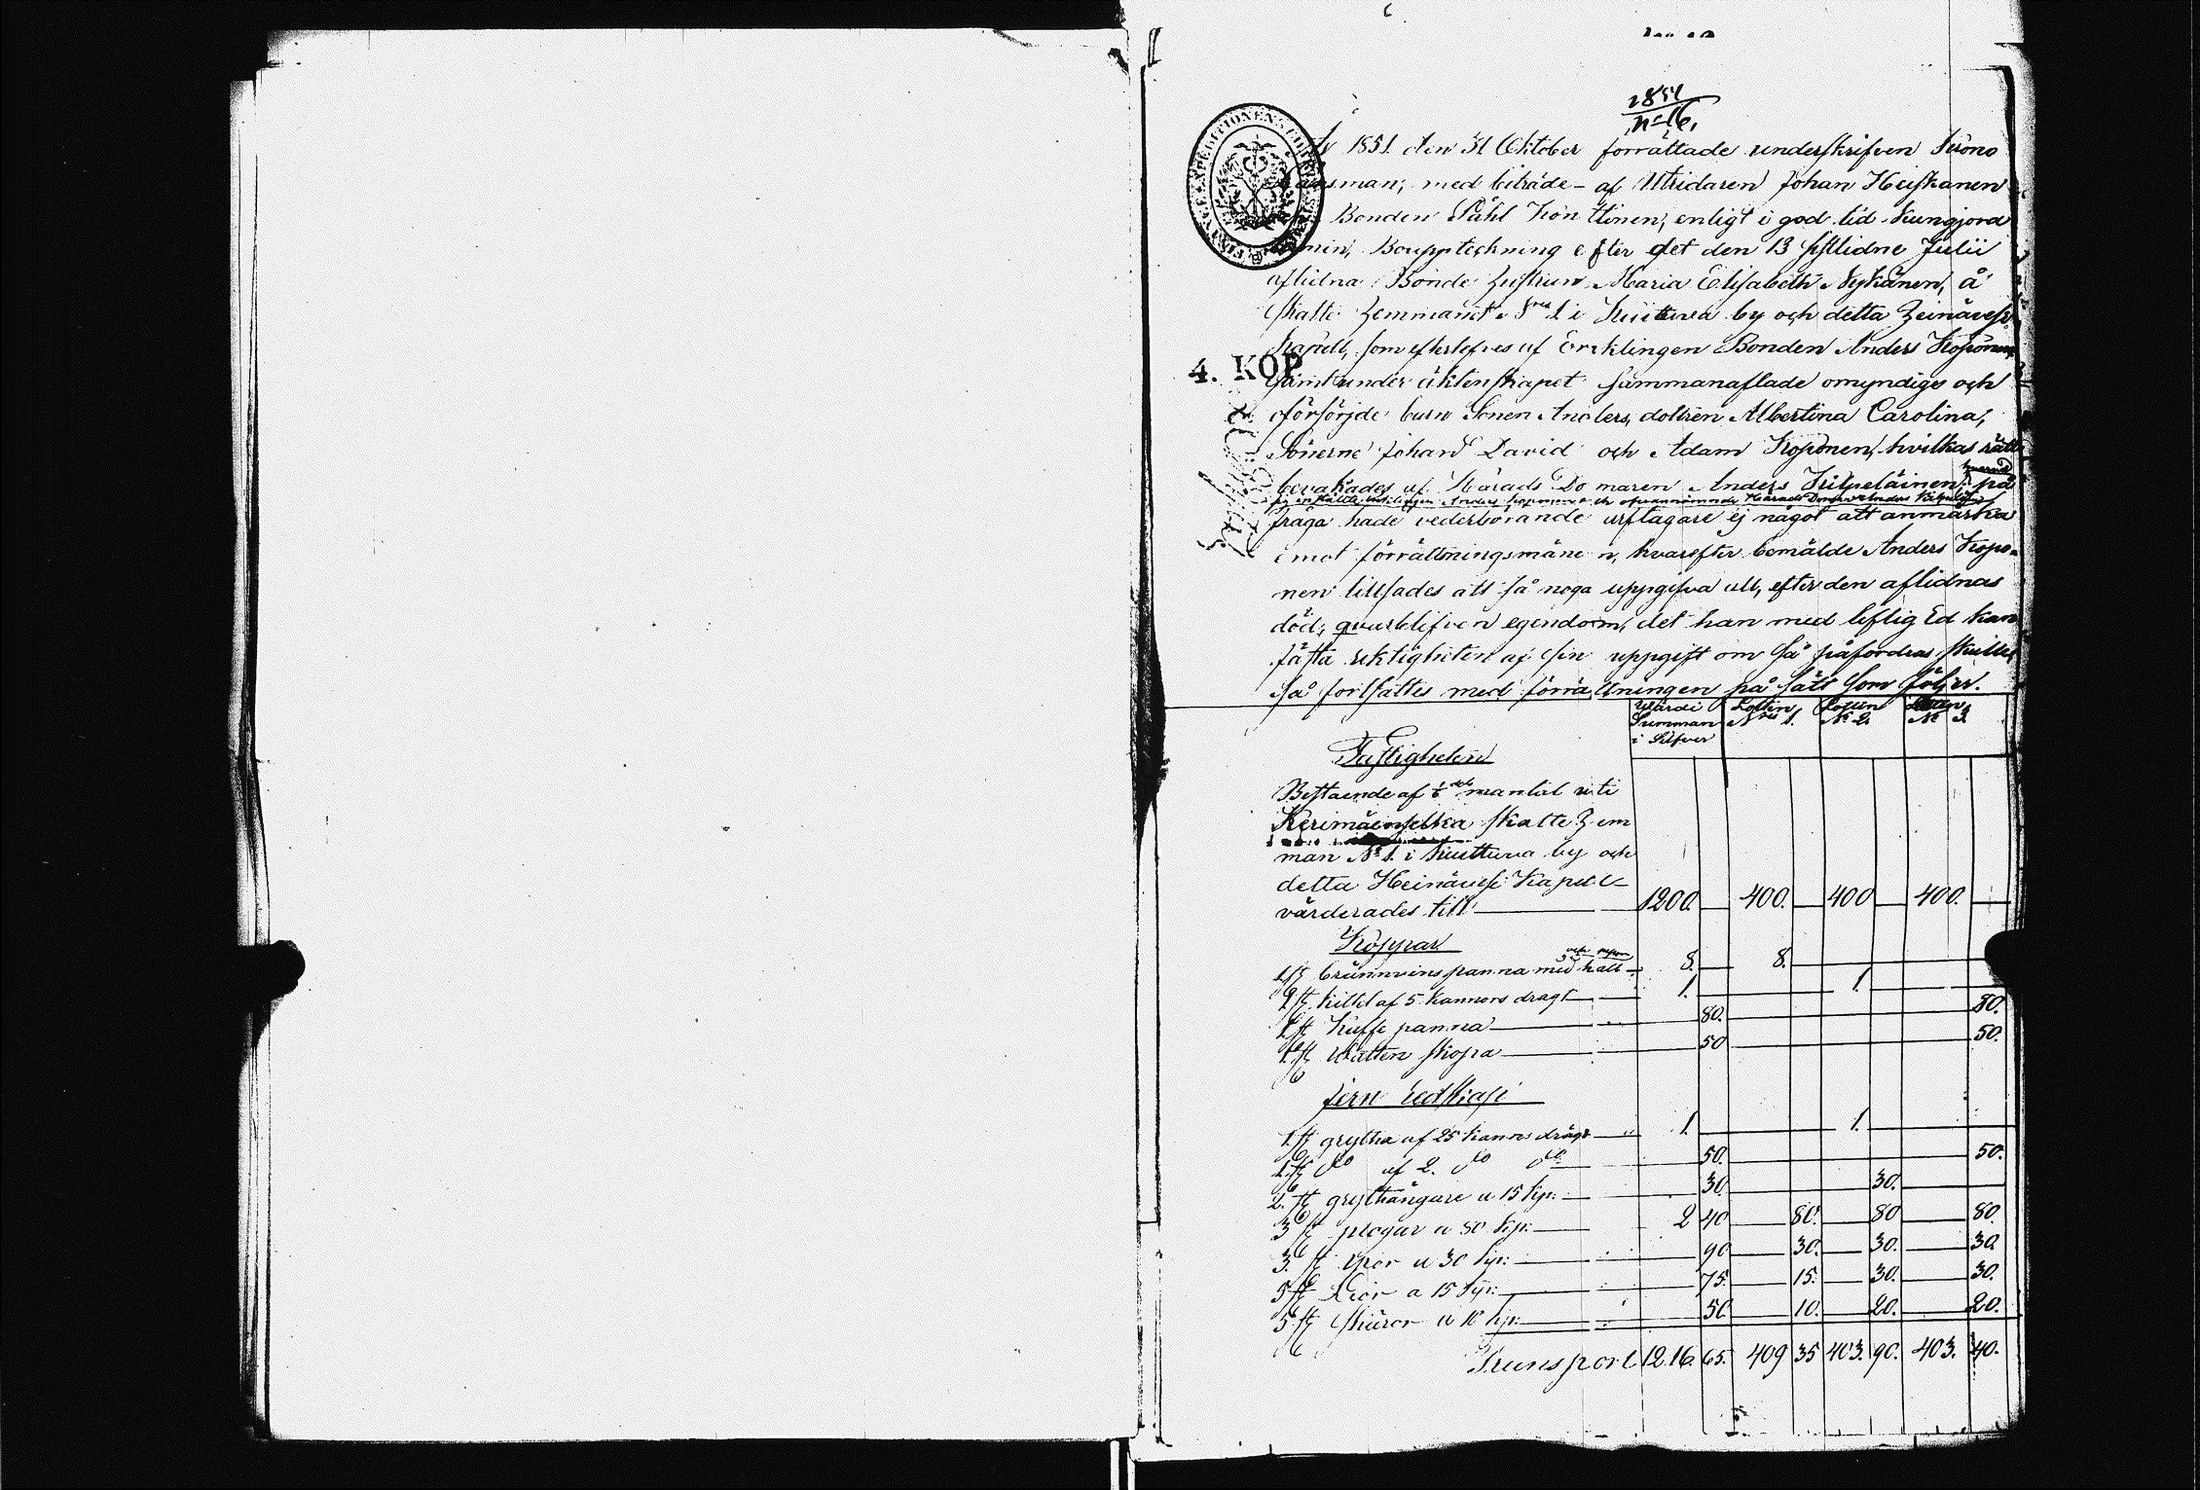 1851
N:o 16.
År 1851. den 31 Oktober förrättade underskrifven Krono
Länsman, med biträde af Utridaren Johan Heiskanen
och Bonden Påhl Konttinen, enligt i god tid kungjord
termin, Bouppteckning efter det den 13 sistlidne Julii
aflidna Bonde hustrun Maria Elisabeth Nykänen, å
skatte hemmanet N:ro 1 i Kuittua by och detta Heinävesi
kapell, som efterlefves af Enklingen Bonden Anders Koponen,
4. KOP
samt under äktenskapet sammanaflade omyndige och
oförsörjde barn Sonen Anders, dottren Albertina Carolina,
Sönerne Johan David och Adam Koponen, hvilkas rätt
bevakades af Härads Domaren Anders Kilpeläinen; på
fråga hade vederbörande arftagare ej något att anmärka
emot förrättningsmänen, hvarefter bemälde Anders Kopo-
nen tillsades att så noga uppgifva all, efter den aflidnas
död, qvarblifven egendom, det han med liflig Ed kan
fästa riktigheten af sin uppgift om så påfordras skulle,
så fortsattes med förrättningen på sätt som följer.
Värdi Summan i Silfver Lotten N:ro 1. Lotten N:o 2. Lotten N:o 3.
Fastigheten
Bestående af 1/6 dels mantal uti
Kerimäenselkä skatte Hem
man N:o 1. i Kuittua by och
detta Heinävesi Kapell
värderades till 1200. 400. 400 400.
Koppar
1 st brännvins panna med hatt 8. 8.
1 st kittel af 5 kannors dragt 1. 1.
1 st Kaffe panna 80. 80.
1 st Watten skopa 50 50.
Jern Redskap
1 st gryta af 25 kannors drägt 1. 1.
1 st d:o af 2. d:o d:o 50. 50.
2. st grythängare a 15 kp: 30. 30.
3 st plogar a 80 kp: 2 40 80. 80 80.
3. st yxor a 30 kp: 90 30. 30. 30.
5 st Liar a 15 kp: 75. 15. 30. 30.
5 st skäror a 10 kp: 50 10. 20. 20.
Transport 1216. 65. 409 35 403. 90. 403. 40.